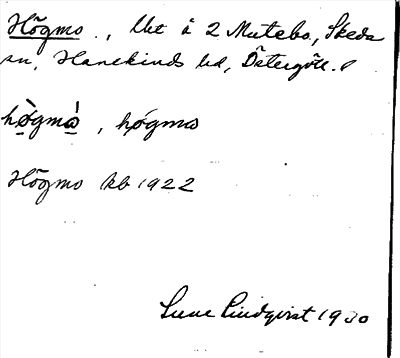 Högmo., Ut å 2 Mutebo, Skeda
sn, Hanekinds hd, Östergötl.
hògmò, hógmo
Högmo kb 1922
Sune Lindqvist 1930